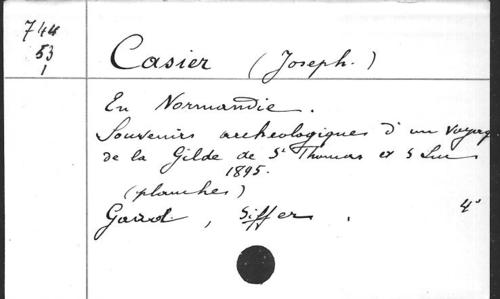 744
53
1
Casier (Joseph.)
En Normandie.
Souvenirs archéologiques d'un voyage
de la Gilde de St Thomas et S Luc
1895.
(planches)
Gand, Siffer.
4°